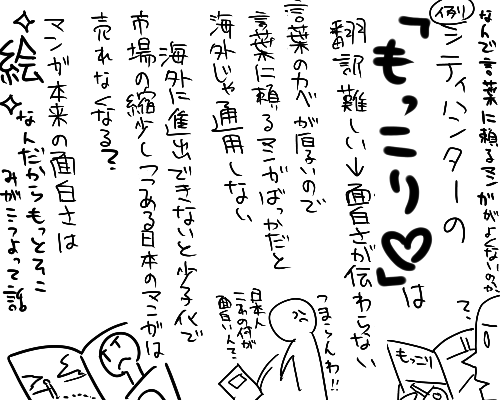 なんで言葉に頼るマンガがよくないのか
(例)
シティハンターの
「もっこり♡」は
翻訳難しい→面白さが伝わらない
言葉のカベが厚いので
言葉に頼るマンガばっかだと
海外じゃ通用しない
海外に進出できないと少子化で
市場の縮少しつつある日本のマンガは
売れなくなる?
マンガ本来の面白さは
絵
なんだからもっとそこ
みがこうよって話
?
もっこり
つまらんわ!!
日本人
これの何が
面白いんだ?